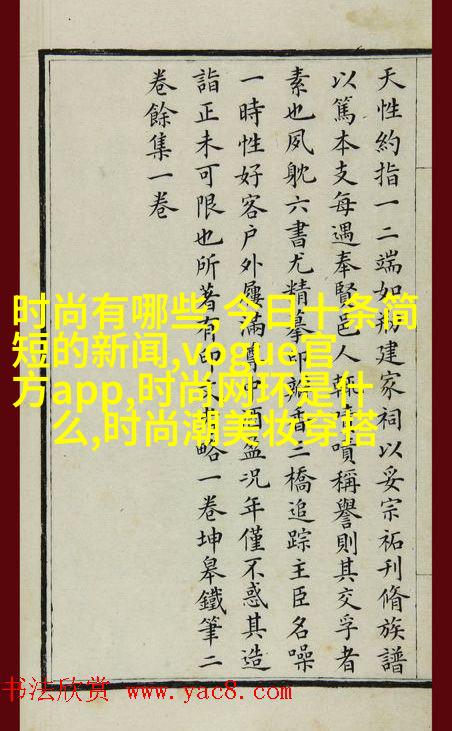 时尚有哪些,今日十条简
短的新闻,vogue官
方app,时尚网环是什
么,时尚潮美妆穿搭
天性約指一二端如建家祠以妥宗祏刊脩族譜
以篤本支每遇奉賢邑人嘖稱譽則其交孚者
素也夙躭六書尤精摹印香三橋追踪主臣名噪
一時性好客户外屨滿中酒盈況年僅不惑其造
詣正未可限也所著有印略一卷坤皋鐵筆二
卷餘集一卷
书法欣赏 www.yac8.com